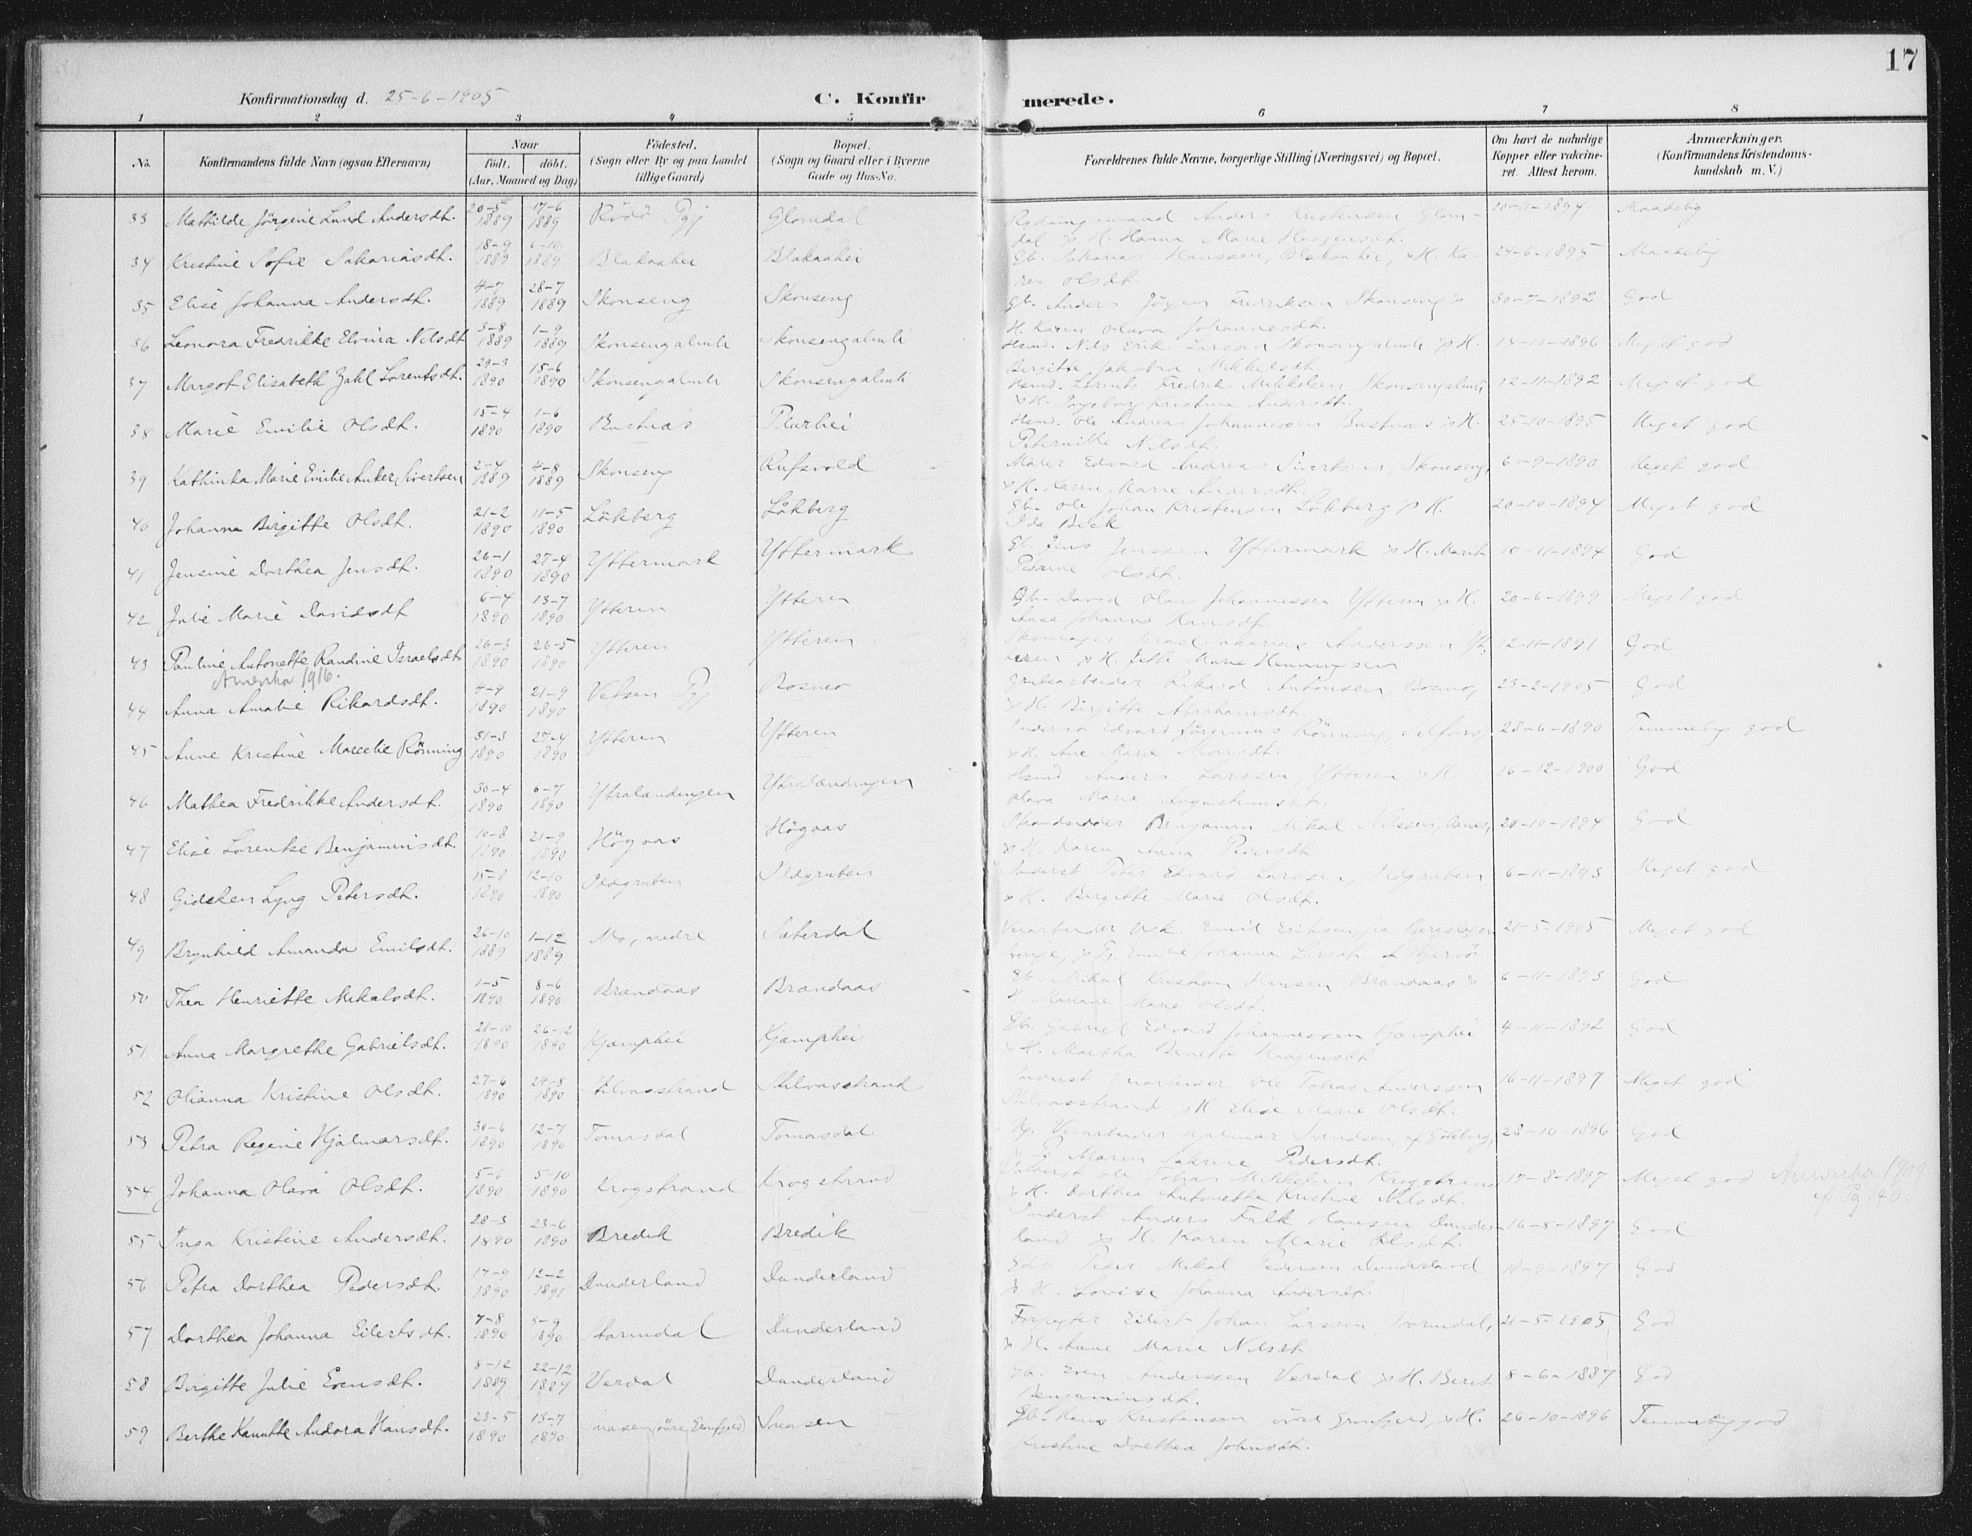 17
Konfirmationsdag d. 25-6-1905
C. Konfirmerede.
1 2 3 4 5 6 7 8
No. Konfirmandens fulde Navn (ogsaa Efternavn) Naar født. døbt. (Aar, Maaned og Dag) Fødested. (Sogn eller By og paa Landet tillige Gaard) Bopæl. (Sogn og Gaard eller i Byerne Gade og Hus-No. Forældrenes fulde Navne, borgerlige Stilling (Næringsvei) og Bopæl. Om havt de naturlige Kopper eller vaccineret. Attest herom. Anmærkninger. (Konfirmandens Kristendomskundskab m. V.)
33 Mathilde Jörgine Lund Andersdt. 20-5 1889 17-6 1889 Rödö Pgj Glomdal Anders Kristensen Glomdal & H. Hanna Marie Haagensdt. 10-11-1894 Maadelig
34 Kristine Sofie Sakariasdt. 18-9 1889 6-10 1889 Blakaahei Blakaahei Gb. Sakarias Hanssen, Blakaahei, & H. Karen Olsdt. 24-6-1895 Maadelig
35 Elise Johanna Andersdt. 4-7 1889 28-7 1889 Skonseng Skonseng Gb. Anders Jörgen Fredriksen Skonseng & H. Karen Olava Johannesdt. 30-7-1892 God
36 Leonora Fredrikke Elvina Nilsdt 3-8 1889 1-9 1889 Skonsengalmli Skonsengalmli Husmd. Nils Erik Larssen Skonsengalmli & H. Birgitte Jakobine Mikkelsdt. Meget god
37 Margot Elisabeth Zahl Lorentsdt. 29-3 1890 15-6 1890 Skonsengalmli Skonsengalmli Husmd. Lorents Fredrik Mikkelsen Skonsengalmli & H. Ingeborg Kristine Andersdt. 12-11-1892 Meget god
38 Marie Emilie Olsdt. 15-4 1890 1-6 1890 Bustnæs Plurhei Husmd. Ole Andreas Johannessen Bustnæs & H. Nilsdt. 25-10-1895 Meget god
39 Kathinka Marie Emilie Anker Sivertsen 2-7 1889 4-8 1889 Skonseng Rufsvold Maler Edvard Andreas Sivertsen, Skonseng, & H. Karen Marie Andersdt. 6-9-1890 Meget god
40 Johanna Birgitte Olsdt. 21-2 1890 11-5 1890 Lökberg Lökberg Gb. Ole Johan Kristensen Lökberg & H. Ida Beck 20-10-1894 Meget god
41 Jensine Dorthea Jensdt. 26-1 1890 27-4 1890 Yttermark Yttermark Gb. Jens Jenssen Yttermark & H. Marit Perine Olsdt. 10-11-1894 God
42 Julie Marie Davidsdt 6-4 1890 13-7 1890 Ytteren Ytteren Gb. David Olai Johannessen Ytteren & H. Anna Johanna Hansdt. 20-6-1899 Meget god
43 Pauline Antonette Randine Israelsdt. 26-3 1890 26-5 1890 Ytteren Ytteren Skomager Israel Sakarias Anderssen Ytteren & H. Jette Marie Henningsen 12-11-1891 God
Amerika 1916.
44 Anna Amalie Rikardsdt. 4-9 1890 21-9 1890 Vefsen Pgj Bosmo Grubearbeider Rikard Antonsen, Bosmo, & H. Birgitte Abrahamsdt. 23-2-1905 God
45 Anne Kristine Marcelie Rönning 31-3 1890 27-4 1890 Ytteren Ytteren Edvard Jörginus Rönning & H. Ane Marie Monsdt. 28-6-1890 Temmelig god
46 Mathea Fredrikke Andersdt. 30-4 1890 6-7 1890 Ytralændingen Ytralændingen Husmd Anders Larssen, Ytteren, & H. Olava Marie Augustinusdt. 16-12-1900 God
47 Elise Lorentse Benjaminsdt. 10-8 1890 21-9 1890 Högaas Högaas Strandsidder Benjamin Mikal Nilssen, & H. Karen Anna Pedersdt. 20-10-1894 God
48 Gidsken Lyng Petersdt. 15-8 1890 12-10 1890 Ildgruben Ildgruben Inderst Peter Edvard Larssen, Ildgruben & H. Birgitte Marie Olsdt. 6-11-1893 Meget god
49 Brynhild Amanda Emilsdt. 26-10 1889 1-12 1889 Mo, nedre Sæterdal Emil Eriksen, Johanna Larsdt. 21-5-1905 Meget god
50 Thea Henriette Mikalsdt. 1-5 1890 8-6 1890 Brandaas Brandaas Gb. Mikal Kristian Hansen Brandaas & H. Mariane Marie Olsdt. 6-11-1893 God
51 Anna Margrethe Gabrielsdt. 21-10 1890 26-12 1890 Kjæmphei Kjæmphei Gb. Gabriel Edvard Johannessen Kjæmphei & H. Martha Benette Haagensdt 4-11-1892 God
52 Olianna Kristine Olsdt. 27-6 1890 24-8 1890 Stilvasstrand Stilvasstrand Inderst Ole Tobias Anderssen Stilvasstrand & H Elise Marie Olsdt. 16-11-1897 Meget god
53 Petra Regine Hjalmarsdt. 30-6 1890 12-7 1890 Tomasdal Tomasdal Hjalmar Svendsen, af Göteborg, Maren Sakrine Pedersdt. 28-10-1896 God
54 Johanna Olava Olsdt. 5-6 1890 5-10 1890 Krogstrand Krogstrand Inderst Ole Tobias Mikkelsen Krogstrand & H. Dorthea Antonette Kristine Nilsdt. 17-8-1897 Meget god Amerika 1909
55 Inga Kristine Andersdt. 28-3 1890 23-6 1890 Bredik Bredik Inderst Anders Falk Hansen Dunderland & H. Karen Marie Olsdt. 16-8-1897 God
56 Petra Dorthea Pedersdt. 17-9 1890 12-2 1891 Dunderland Dunderland Peder Mikal Pedersen Dunderland & H. Lovise Johanna Andersdt. 18-9-1897 God
57 Dorthea Johanna Eilertsdt. 7-8 1890 5-9 1890 Stormdal Dunderland Forpagter Eilert Johan Larssen Stormdal, & H. Anne Marie Nilsdt 21-5-1905 God
58 Birgitte Julie Evensdt. 8-12 1889 22-12 1889 Verdal Dunderland Even Anderssen Verdal & H. Berit Benjaminsdt. 8-6-1887 God
59 Berthe Kanutte Andora Hansdt. 23-5 1890 13-7 1890 Gb. Hans Kristensen & H. Kristine Dorthea Johnsdt. 26-10-1896 Temmelig god